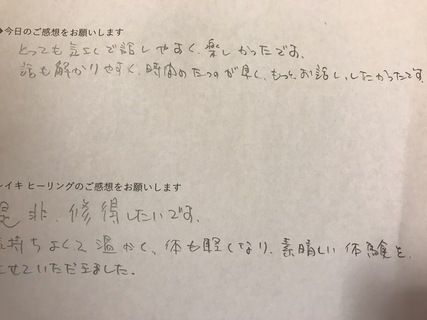 ◆今日のご感想をお願いします
とっても気さくで話しやすく、楽しかったです。
話も解かりやすく、時間のたつのが早く、もっとお話し、したかったです
レイキ ヒーリングのご感想をお願いします
是非、修得したいです。
気持ちよくて温かく、体も軽くなり、素晴しい体験を、
させていただきました。